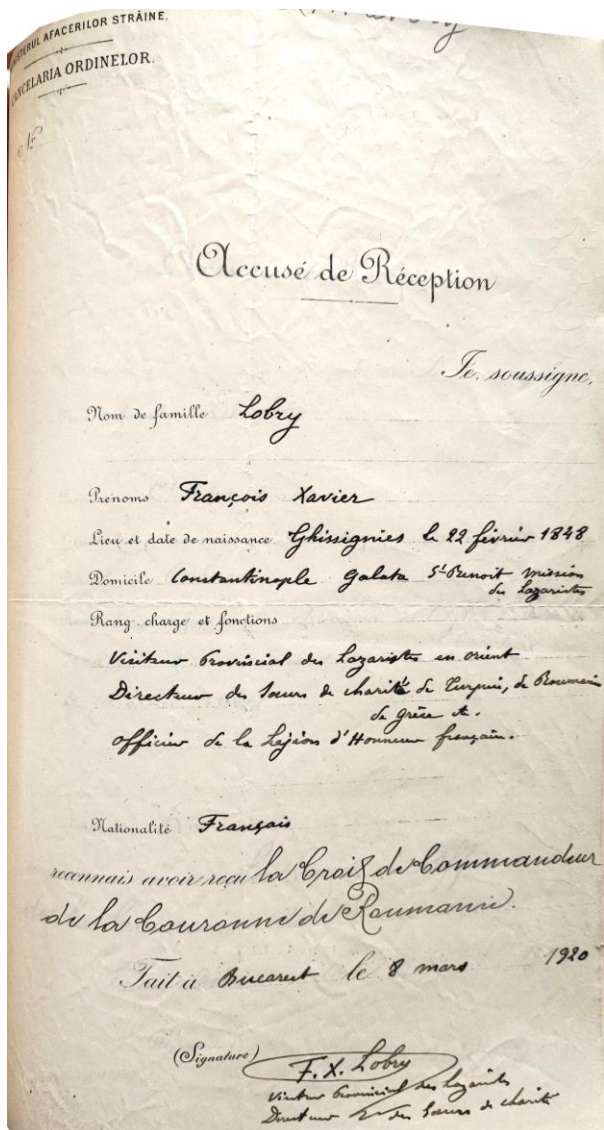 MINISTERUL AFACERILOR STRĂINE.
CANCELARIA ORDINELOR.
Nr.
Accusé de Réception
Je, soussigné,
Nom de famille Lobry
Prénoms François Xavier
Lieu et date de naissance Ghissignies le 22 février 1848
Domicile Constantinople Galata St Benoit mission
des Lazaristes
Rang, charge et fonctions
Visiteur Provincial des Lazaristes en orient
Directeur des Sœurs de charité de Turquie, de Roumanie
de grèce &.
officier de la Légion d'Honneur française.
Nationalité Français
reconnais avoir reçu la Croix de Commandeur
de la Couronne de Roumanie.
Fait à Bucarest le 8 mars 1920
(Signature) F. X. Lobry
Visiteur Provincial des Lazaristes
Directeur des Sœurs de charité